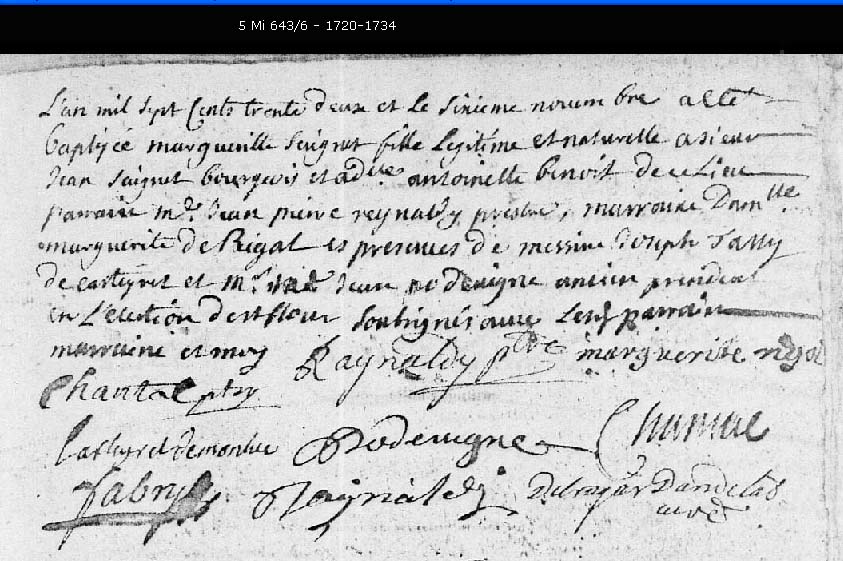 5 Mi 643/6 - 1720-1734
L'an mil sept cents trente deux et le sixieme novembre a este
baptisée margueritte Seignet fille legitime et naturelle a sieur
Jean Seignet bourgeois et a dlle antoinette benoit de ce Lieu
parrain Mr Jean pierre reynaldy prestre, marraine Damlle
marguerite de Rigal es presences de messire Joseph
de et Mr Jean podevigne ancien president
en L'election de st flour soubsignés avec Led parrain
marraine et moy Raynaldy ptre marguerite rigal
Chantal ptre
Podevigne
fabry Raynaldy